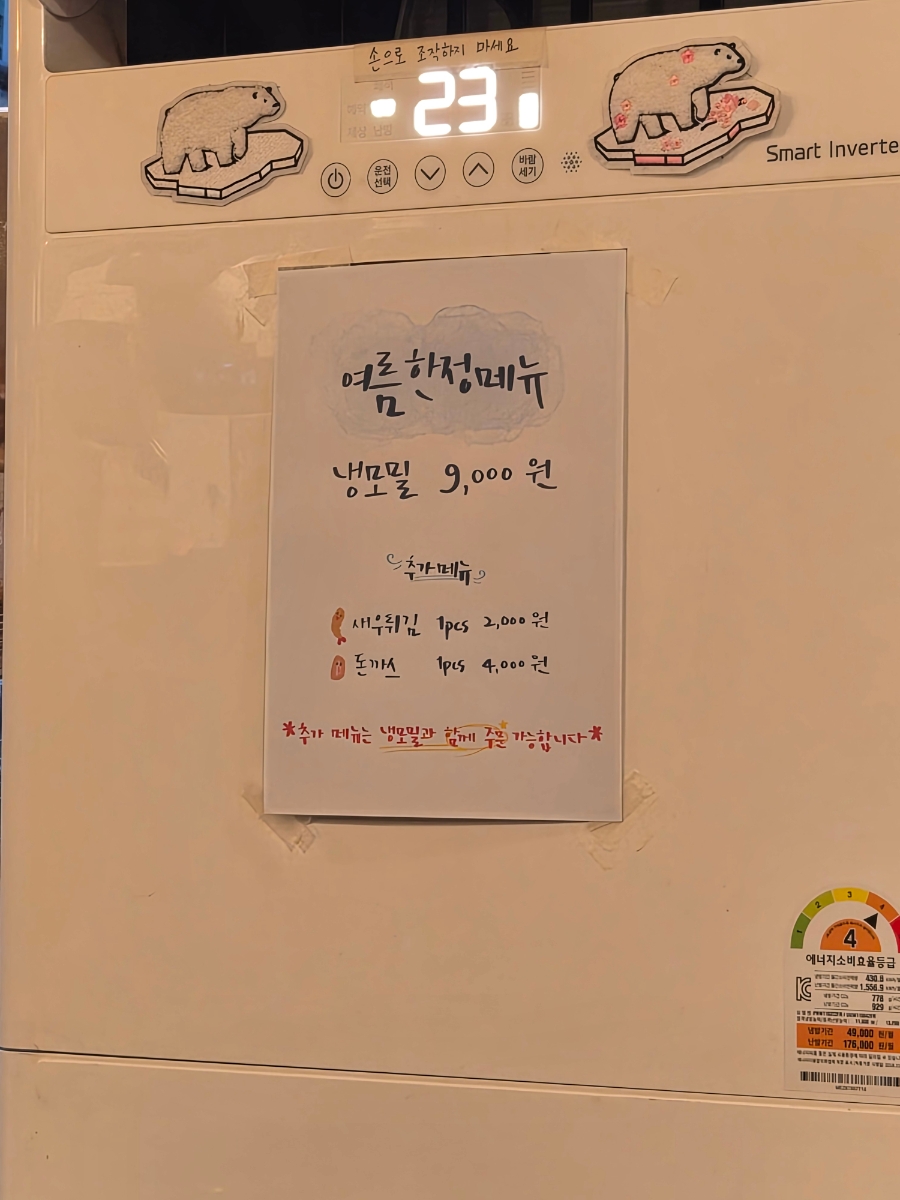 손으로 조작하지 마세요
23
운전
선택
바람
세기
Smart Inverte
여름한정메뉴
냉모밀 9,000 원
추가메뉴
새우튀김 1pcs 2,000 원
돈까스 1pcs 4,000 원
*추가 메뉴는 냉모밀과 함께 주문 가능합니다*
1 2 3 4
4
에너지소비효율등급
430.8
1,556.9
778
929
냉방기간 49,000 원/월
난방기간 176,000 원/월